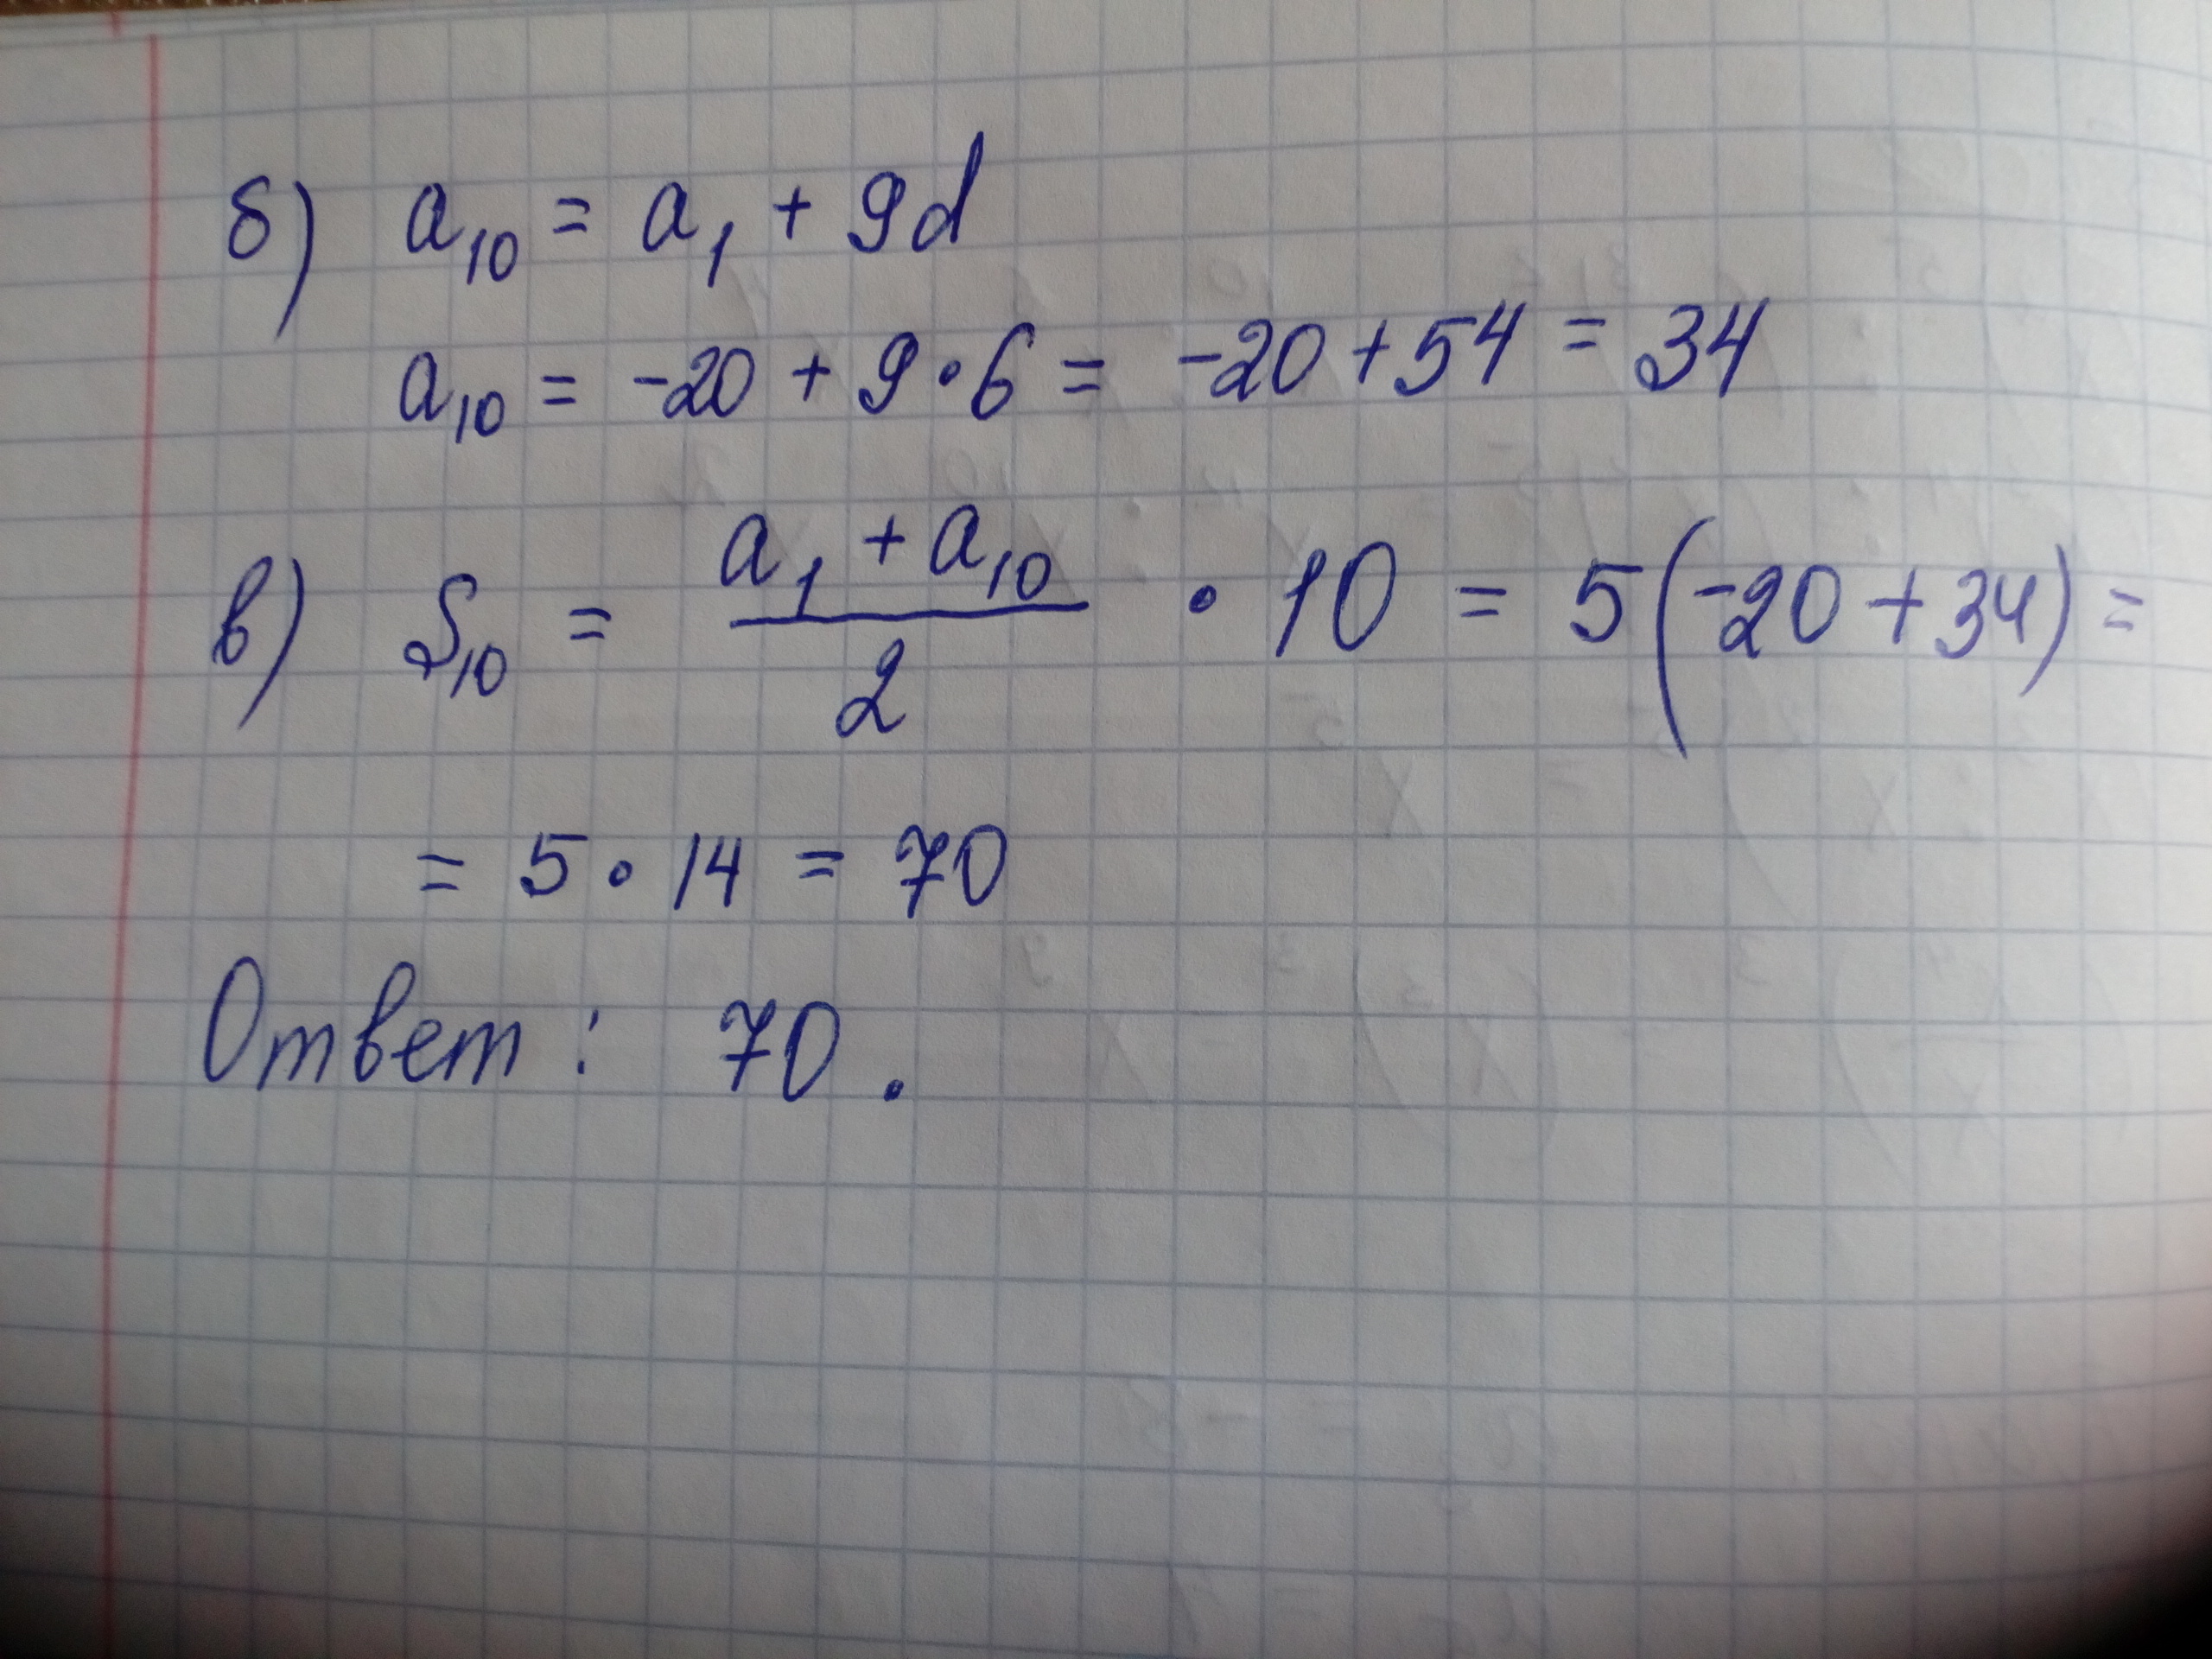 б) a₁₀ = a₁ + 9d
a₁₀ = -20 + 9 · 6 = -20 + 54 = 34
в) S₁₀ = (a₁ + a₁₀)/2 · 10 = 5(-20 + 34) =
= 5 · 14 = 70
Ответ: 70.